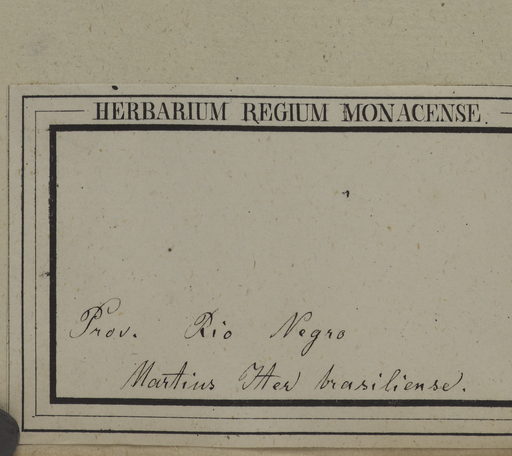 HERBARIUM REGIUM MONACENSE.
Prov. Rio Negro
Martius Iter brasiliense.